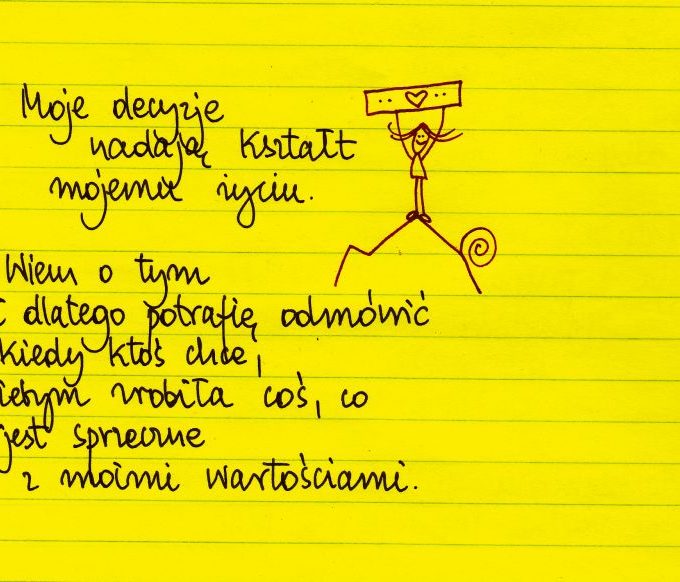 Moje decyzje
nadają kształt
mojemu życiu.
Wiem o tym
i dlatego potrafię odmówić
kiedy ktoś chce,
żebym zrobiła coś, co
jest sprzeczne
z moimi wartościami.